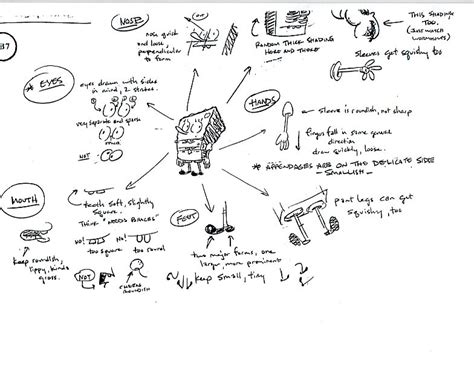 NOSE
nose quick
and loose,
perpendicular
to form
RANDOM THICK SHADING
HERE AND THERE
THIS SHADING
TOO.
Sleeves get squishy too
37
* EYES
eyes drawn with sides
in mind, 2 strokes.
very separate and sparse
NOT
HANDS
sleeve is roundish, not sharp
fingers fall in some general
direction
draw quickly, loose.
* APPENDAGES ARE ON THE DELICATE SIDE
SMALLISH
MOUTH
teeth soft, slightly
square.
Think "NEEDS BRACES"
NO! NO!
too square too round
keep roundish,
lippy, kinda
gross.
NOT
CHEEKS
ROUNDISH
FEET
two major forms, one
larger, more prominent
keep small, tiny
pant legs can get
squishy, too